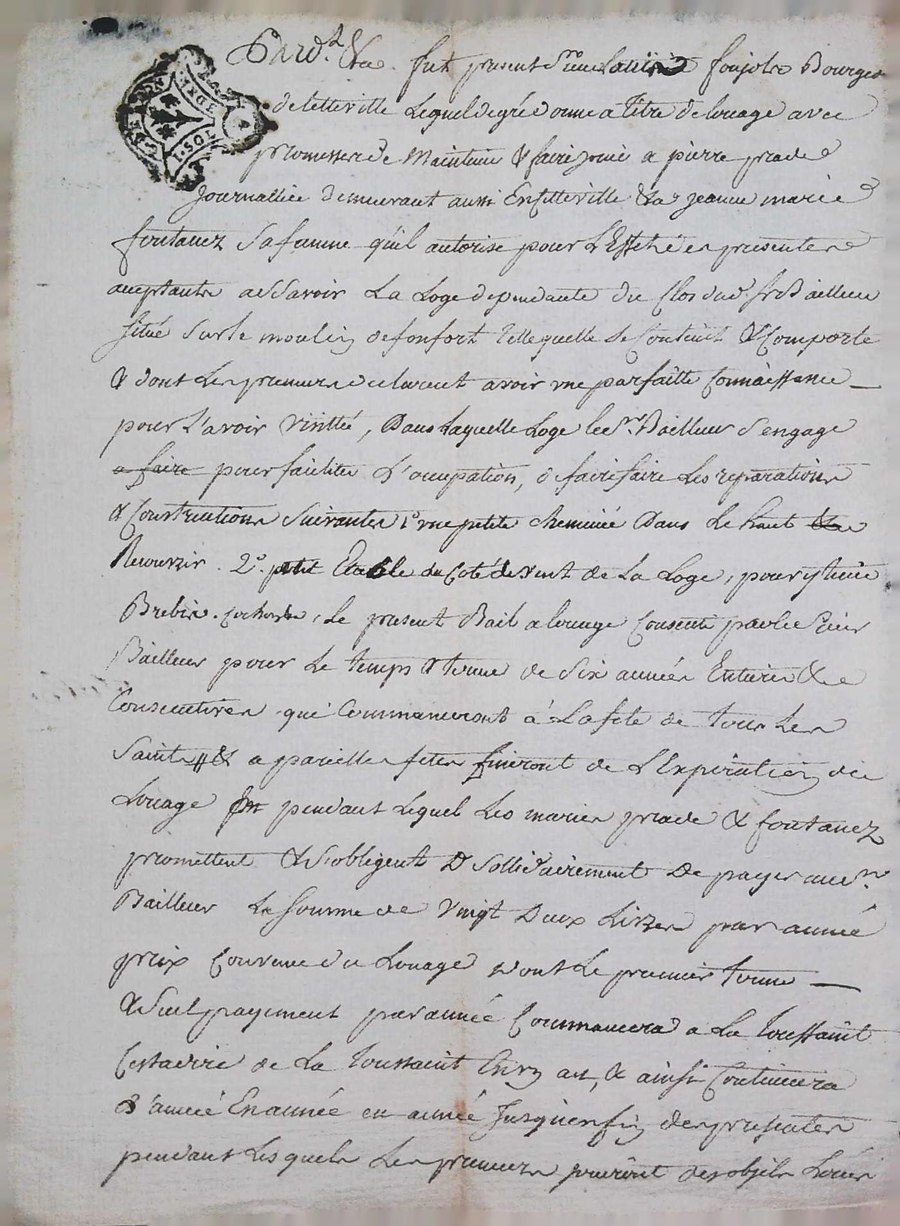 Pard.t &a fut present Sieur foujols Bourgeois
de cette ville Lequel de gré donne a titre de louage avec
promesse de Maintenir & faire jouir a pierre prade
journallier demeurant aussi En cette ville & a jeanne marie
fontanez Sa femme qu'il autorise pour L'Effet des presentes
acceptants a Sçavoir La Loge dependante du Clos dud. Sr. Bailleur
situé Sur le moulin de fonfort telle quelle Se Contient & Comporte
& dont Les preneurs declarent avoir une parfaitte Connaissance
pour L'avoir visittée, Dans laquelle Loge le Sr. Bailleur S'engage
a faire pour faciliter L'occupation, de faire faire Les reparations
& Constructions Suivantes 1° une petite cheminée Dans Le haut
2° petit Etable du Coté de vent de La Loge, pour y tenir
Brebis. cochons, Le present Bail a louage Consenti par le Sieur
Bailleur pour Le temps & terme de Six années Entieres &
Consecutives qui Commanceront a La fete de tous Les
Saints & a pareilles fetes finiront de L'Expiration du
Louage pendant Lequel Les mariés prade & fontanez
promettent & S'obligent Sollidairement De payer au Sr.
Bailleur La Somme de Vingt Deux Livres par année
prix Convenu du Louage dont Le premier terme
& Seul payement par année Commancera a La toussaint
C'est a dire de La toussaint En un an, & ainsi Continuera
d'année En année en année Jusqu'en fin des presentes
pendant Lesquels Les preneurs jouiront des objets Loués